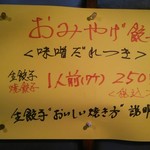 おみやげ餃
<味噌だれつき>
生餃子
1人前(7ケ) 250
生餃子"おいしい焼き方"説明